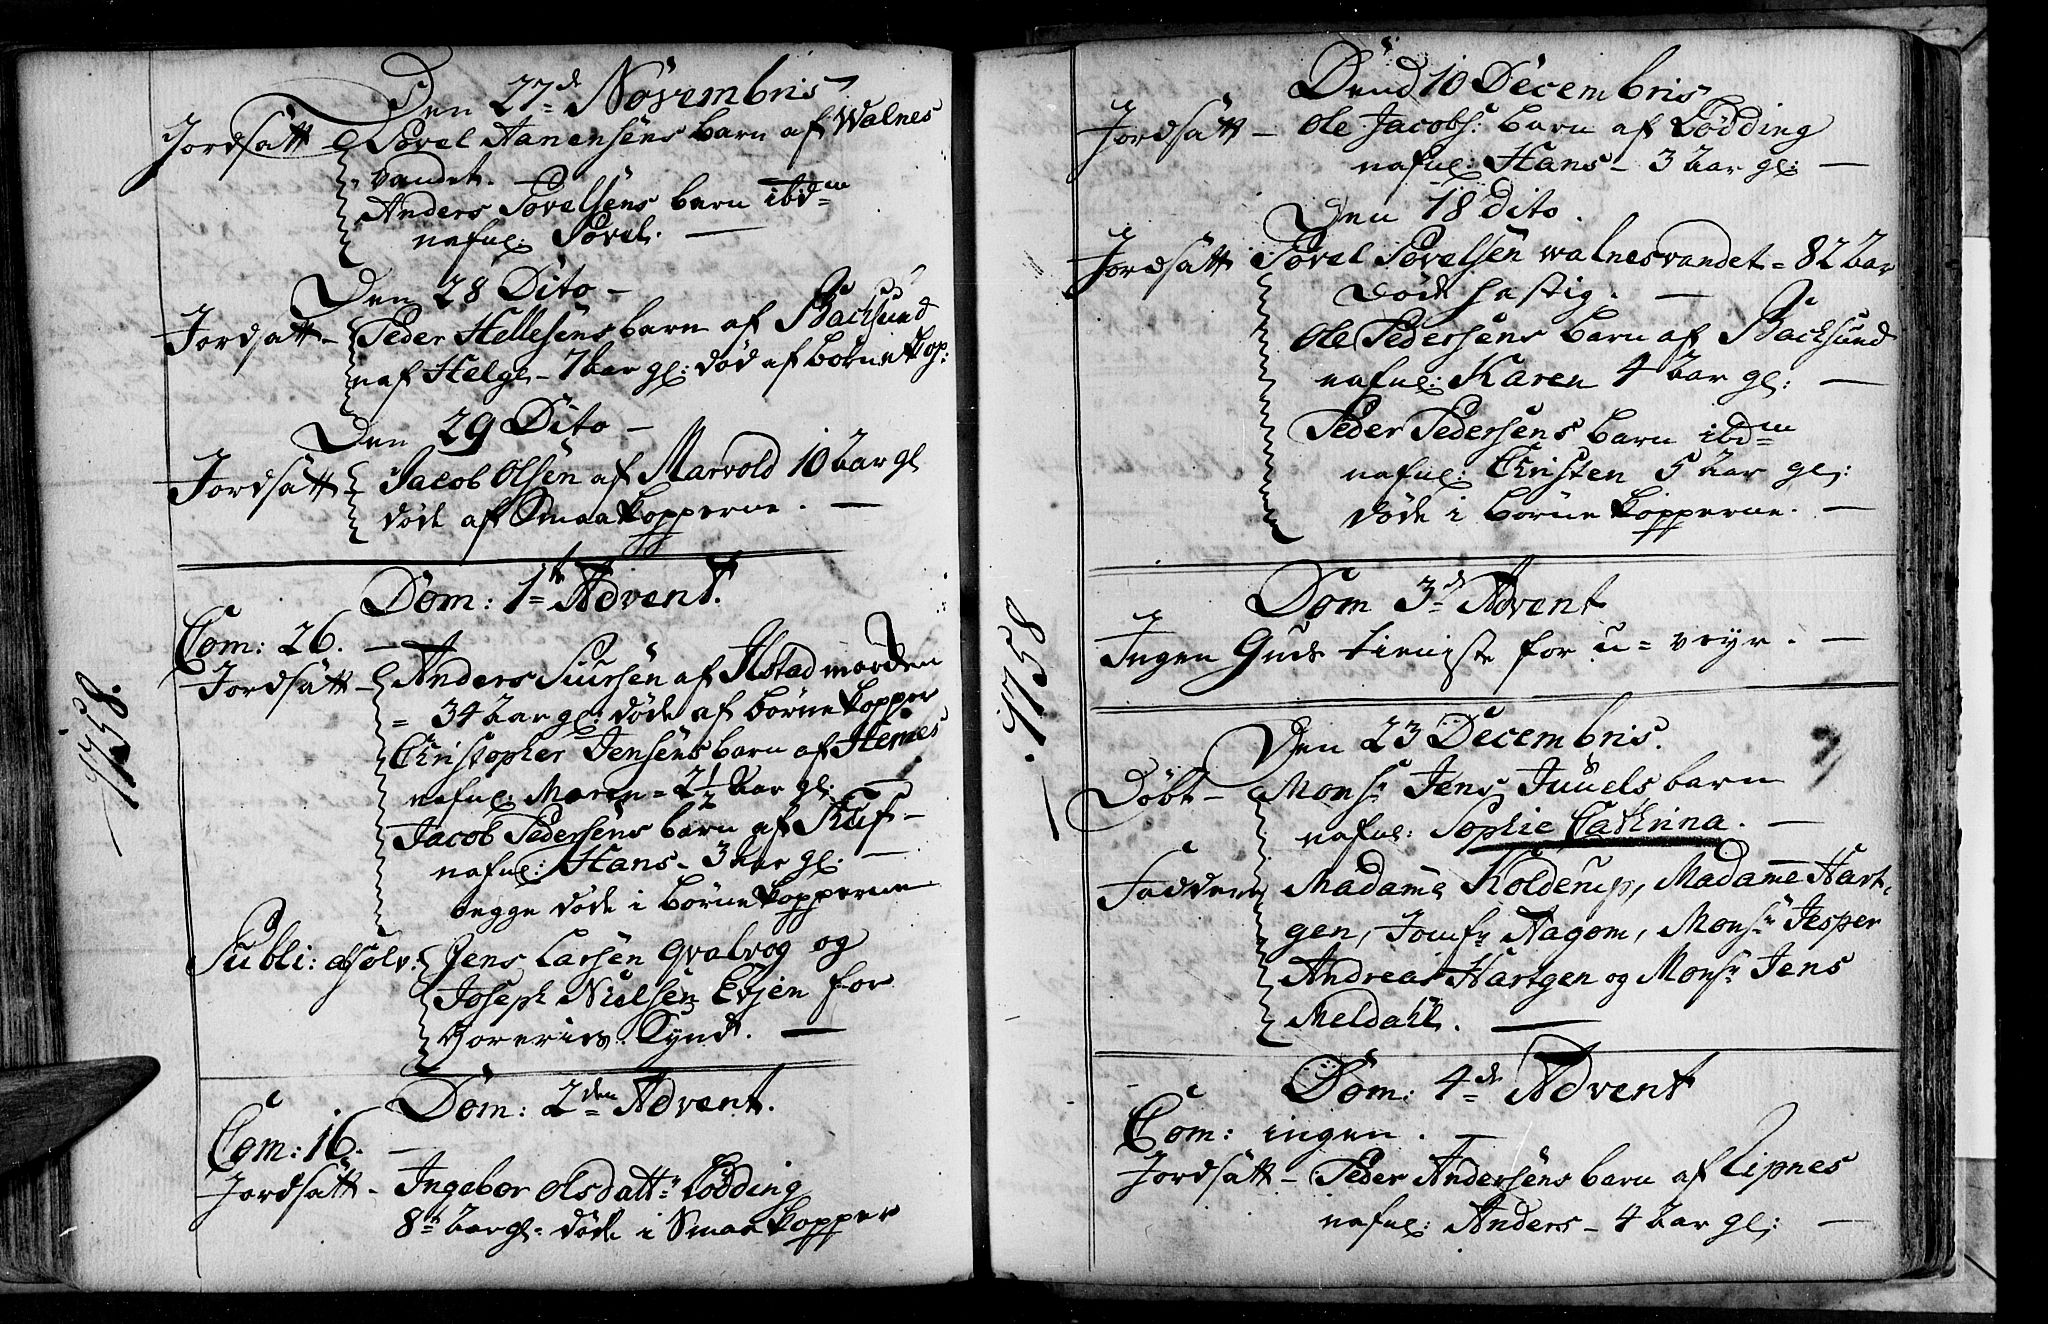 Den 27de Novembris
Jordsatt Povel Aanensens barn af Walnes
vandet.
Anders Povelsens barn ibdm
nafnl: Povel. —
Den 28 Dito —
Jordsatt — Peder Hellesens barn af Backsund
naf Helge — 7 aar gl: død af børnekop:
Den 29 Dito —
Jordsatt — Jacob Olsen af Marvold 10 aar gl
døde af Smaakopperne. —
1758.
Dom: 1te Advent.
Com: 26. —
Jordsatt — Anders Siursen af Alstadmarken
= 34 aar gl: døde af børnekopper
Christopher Jensens barn af Hernes
nafnl: Maren = 2 1/2 aar gl:
Jacob Pedersens barn af Kuf —
nafnl: Hans — 3 aar gl. —
begge døde i børnekopperne
Publi: absolv: Jens Larsen Qvalvog og
Joseph Nielsen Evjen for
Synd. —
Dom: 2den Advent.
Com: 16. —
Jordsatt — Ingebor Olsdattr Lødding
8te aar gl. døde i Smaakopper
Dend 10 Decembris
Jordsatt — Ole Jacobs: barn af Lødding
nafnl: Hans — 3 aar gl: —
Den 18 dito.
Jordsatt Povel Povelsen walnesvandet = 82 aar
døde hastig. —
Ole Pedersens barn af Backsund
nafnl: Karen 4 aar gl: —
Peder Pedersens barn ibdm
nafnl: Christen 5 aar gl:
døde i børnekopperne. —
1758
Dom 3de Advent
Ingen Guds tieniste for u=veyr. —
Den 23 Decembris.
Døbt — Monsr Jens Juuels barn
nafnl: Sophie Cathrina. —
Faddere Madame Kolderup, Madame Hart-
gen, Jomfr Aagom, Monsr Jesper
Andreas Hartgen og Monsr Jens
Meldahl. —
Dom: 4de Advent
Com: ingen. —
Jordsatt — Peder Andersens barn af Lipnes
nafnl: Anders — 4 aar gl: —